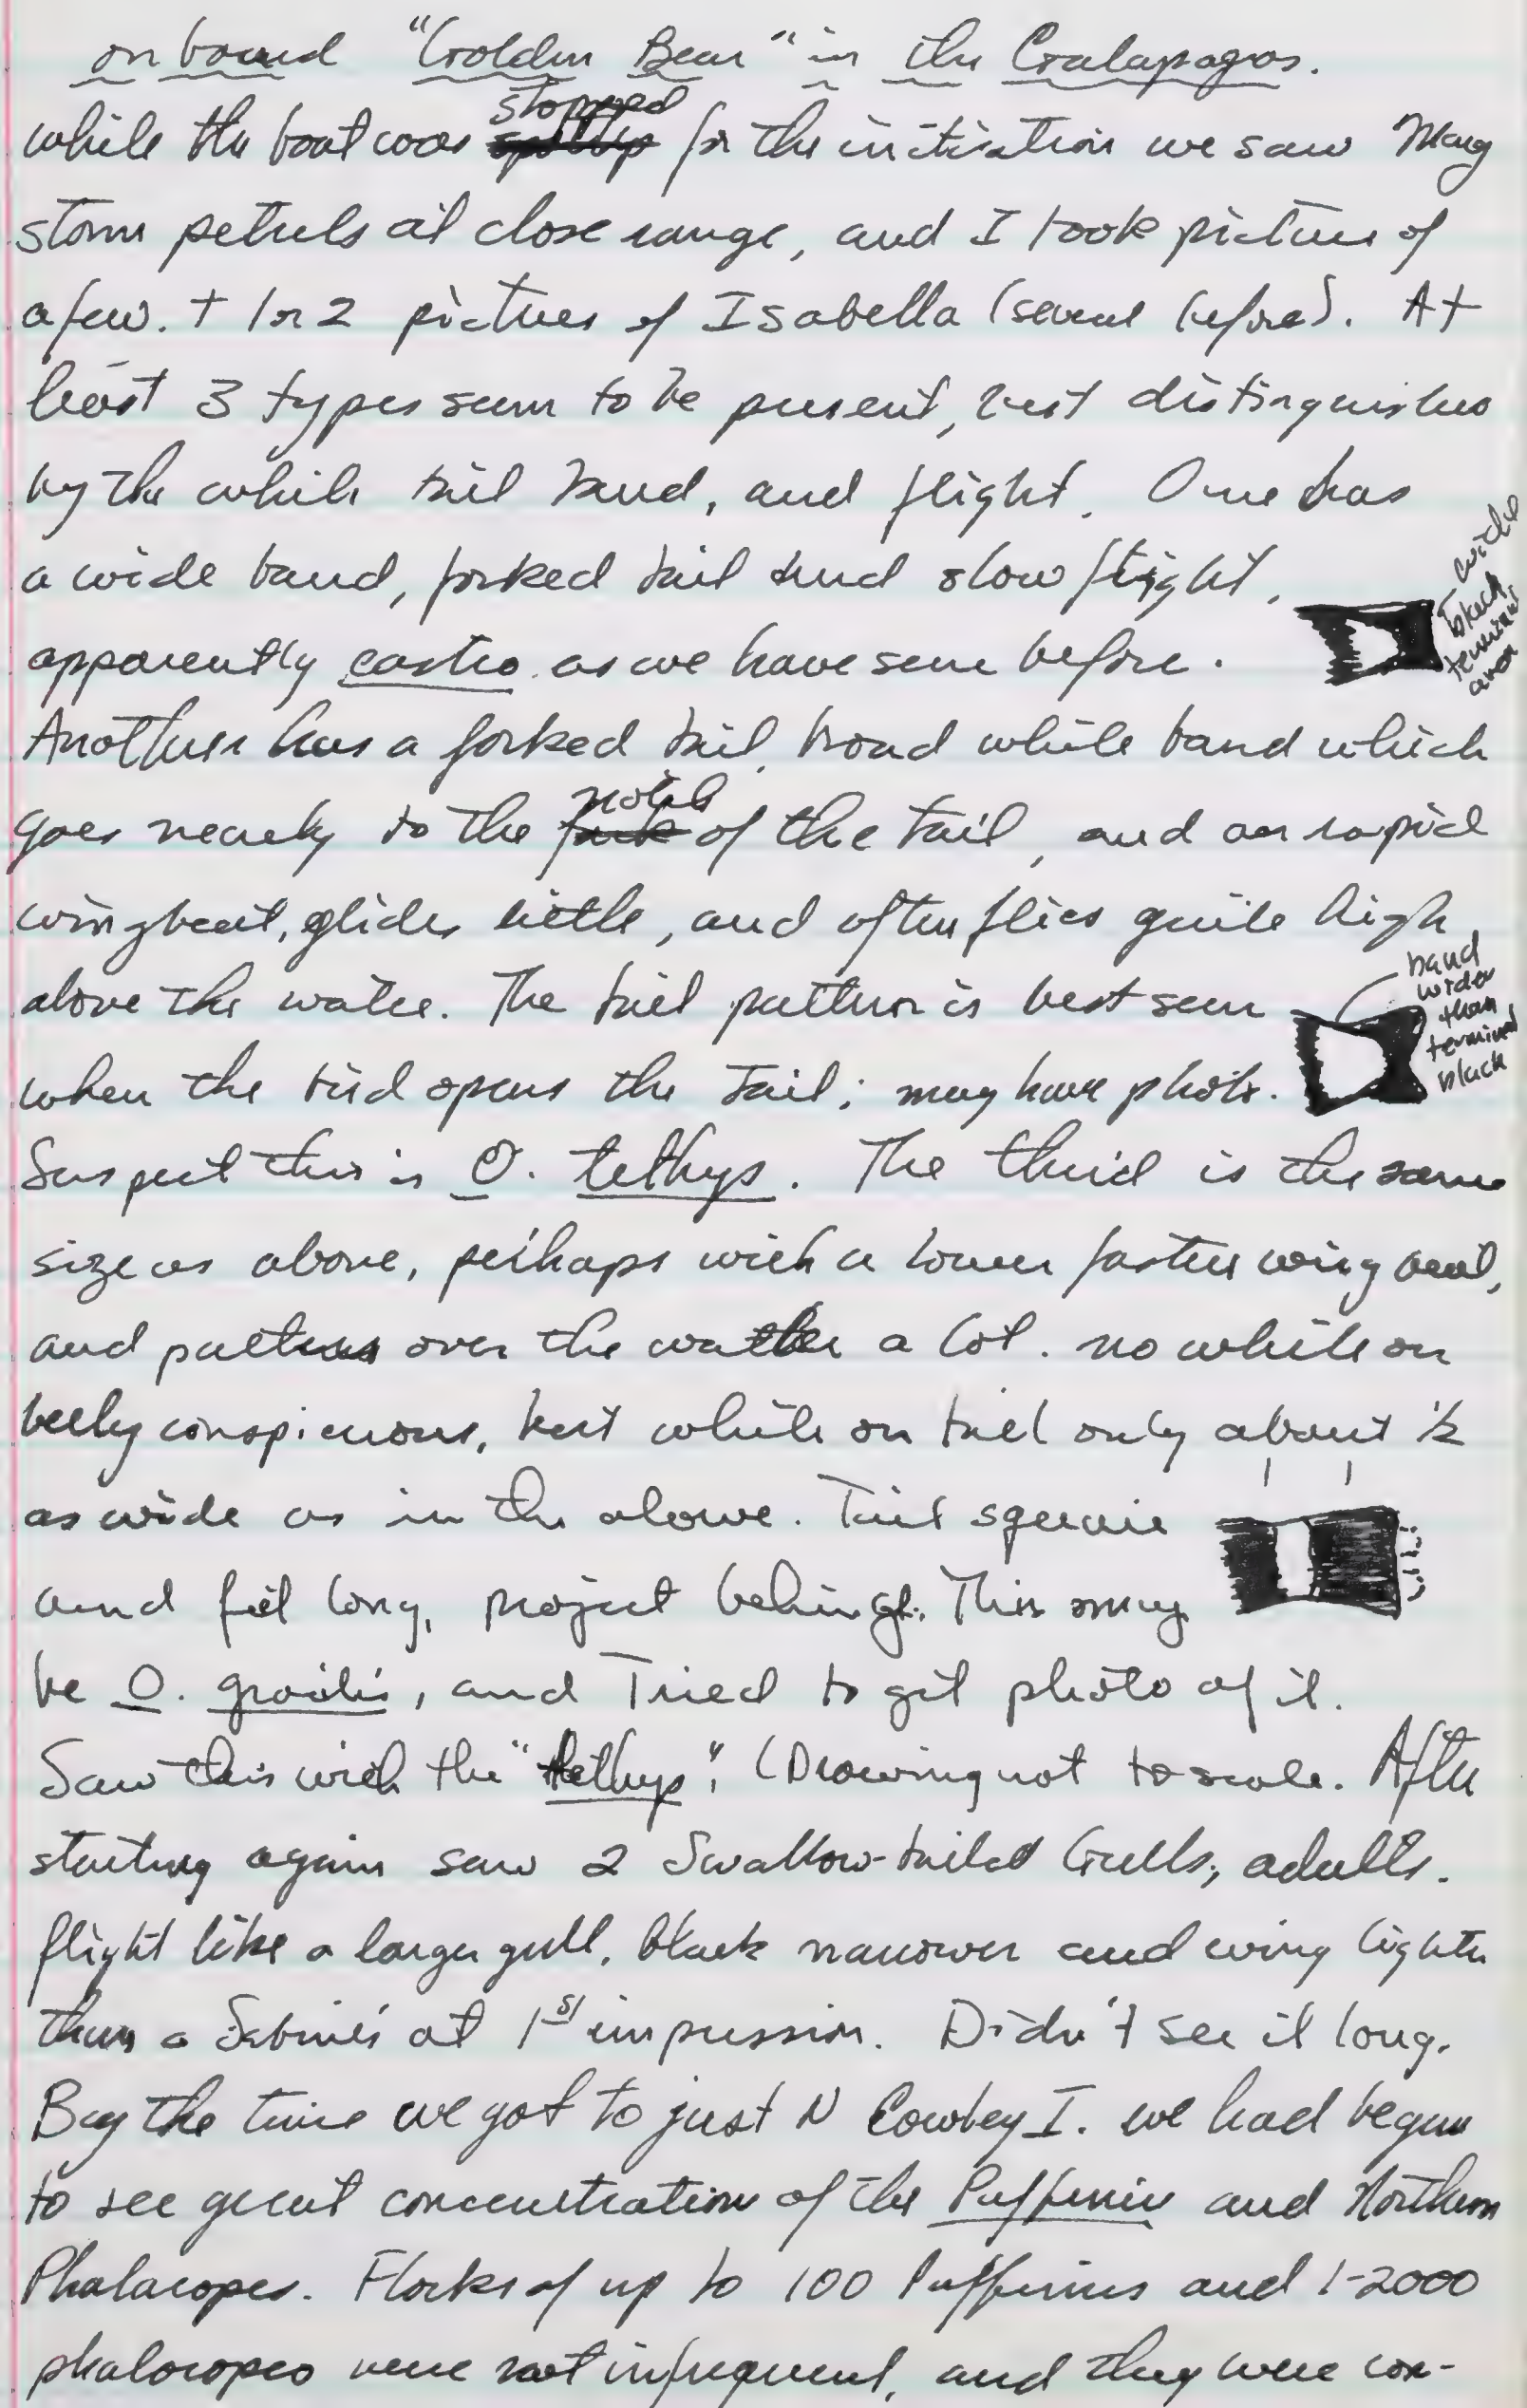 on board "Golden Bear" in the Galapagos.
while the boat was stopped for the initiation we saw Many
storm petrels at close range, and I took picture of
a few. + 1 or 2 pictures of Isabella (several before). At
least 3 types seem to be present, best distinguishes
by the white tail band, and flight. One has
a wide band, forked tail and slow flight,
wide
black
terminal
area
apparently castro as we have seen before.
Another has a forked tail, broad white band which
goes nearly to the fork notch of the tail, and an rapid
wingbeat, glides little, and often flies quite high
above the water. The tail pattern is best seen
band
wider
than
terminal
black
when the bird opens the tail; may have photo.
Suspect this is O. tethys. The third is the same
size as above, perhaps with a lower faster wing beat,
and patters over the water a lot. no white on
belly conspicuous, but white on tail only about ½
as wide as in the above. Tail square
and feet long, project behind. This may
be O. gracilis, and Tried to get photo of it.
Saw this with the "tethys". (Drawing not to scale. After
starting again saw 2 Swallow-tailed Gulls, adults.
flight like a larger gull, black narrower and wing lighter
than a Sabine's at 1st impression. Didn't see it long.
By the time we got to just N Cowley I. we had begun
to see great concentration of the Puffinus and Northern
Phalaropes. Flocks of up to 100 Puffinus and 1-2000
phalaropes were not infrequent, and they were con-